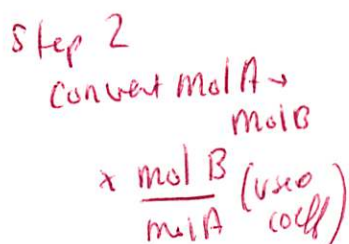 Step 2
convert mol A →
mol B
x mol B (use
mol A coeff)